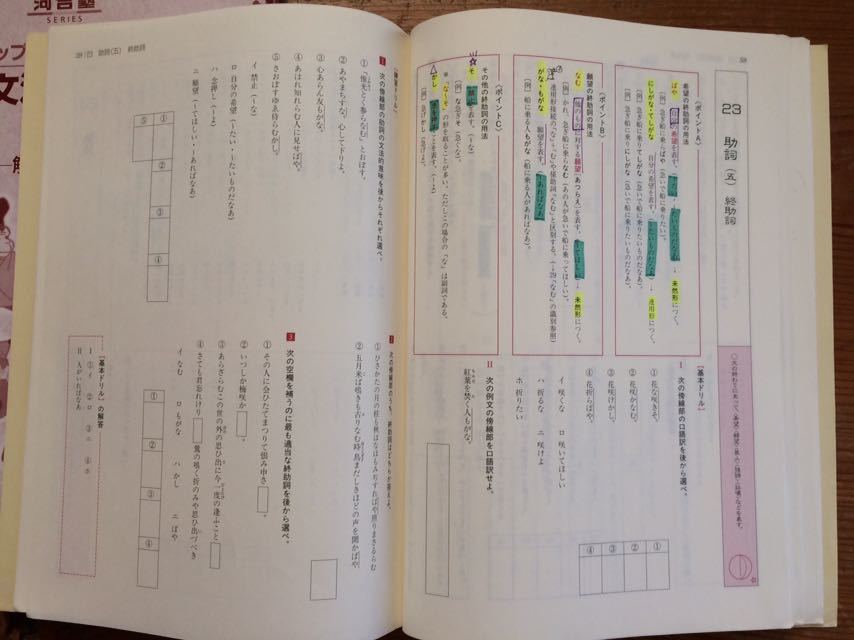 58
23 助詞(五) 終助詞
〈ポイントA〉
希望の終助詞の用法
ばや
自分の希望を表す。
未然形につく。
(例) 急ぎ船に乗らばや (急いで船に乗りたい)。
にしがな・てしがな
自分の希望を表す。
連用形につく。
(例) 急ぎ船に乗りてしがな (急いで船に乗りたいものだなあ)。
〈ポイントB〉
願望の終助詞の用法
なむ
に対する願望(あつらえ)を表す。
未然形につく。
(例) かれ、急ぎ船に乗らなむ (あの人が急いで船に乗ってほしい)。
がな・もがな
願望を表す。
(~あればなあ)
(例) 船に乗る人もがな (船に乗る人があればなあ)。
〈ポイントC〉
その他の終助詞の用法
そ
禁止を表す。(~な)
(例) な急ぎそ (急ぐな)。
※「な~そ」の形を取ることが多い。ただしこの場合の「な」は副詞である。
かし
ことを表す。(~よ)
(例) 急げかし (急げよ)。
〔基本ドリル〕
I 次の傍線部の口語訳を後から選べ。
① 花な咲きそ。
② 花咲かなむ。
③ 花咲けかし。
④ 花折らばや。
イ 咲くな ロ 咲いてほしい
ハ 折るな ニ 咲けよ
ホ 折りたい
①
②
③
④
II 次の例文の傍線部を口語訳せよ。
紅葉を焚く人もがな。
59 23 助詞(五) 終助詞
〔練習ドリル〕
1 次の傍線部の助詞の文法的意味を後からそれぞれ選べ。
① 「惟光とく参らなむ」とおぼす。
② あやまちすな。心しており よ。
③ 心あらん友もがな。
④ あはれ知れらむ人に見せばや。
⑤ さおぼすゆゑ侍らむかし。
イ 禁止 (~な)
ロ 自分の希望 (~たい・~たいものだなあ)
ハ 念押し (~よ)
ニ 願望 (~てほしい・~あればなあ)
①
②
③
④
⑤
① ひさかたの月の桂も秋はなほもみぢすればや照りまさるらむ
② 五月来ば鳴きも古りなむ時鳥まだしきほどの声を聞かばや
3 次の空欄を補うのに最も適当な終助詞を後から選べ。
① その人に会ひたてまつりて恨み申さ 。
② いつしか梅咲か 。
③ あらざらむこの世の外の思ひ出に今一度の逢ふこと
④ さても君忘れけり 鶯の鳴く折のみや思ひ出づべき
イ なむ ロ もがな ハ かし ニ ばや
①
②
③
④
〔基本ドリル〕の解答
I ①イ ②ロ ③ニ ④ホ
II 人がいればなあ
河合塾
SERIES